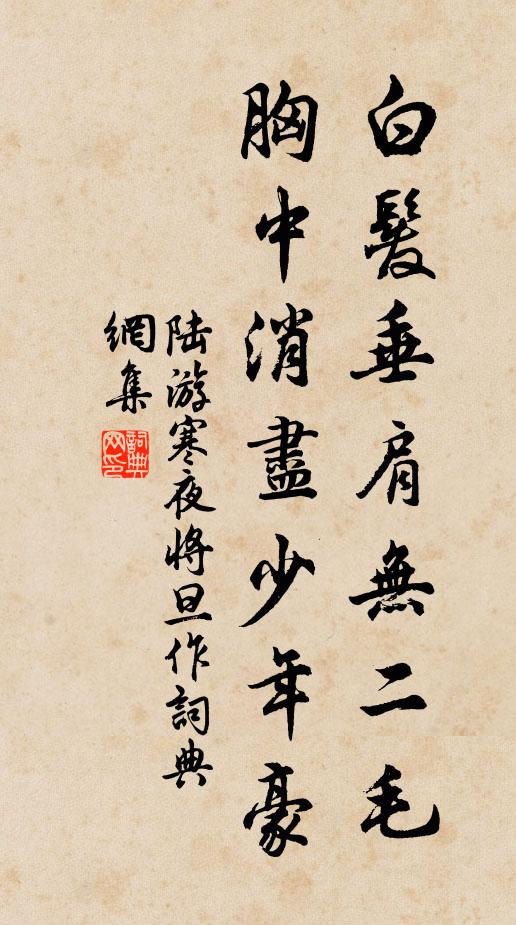 白髮垂肩無二毛
胸中消盡少年豪
陆游寒夜將旦作詞典
網集
詞典
网印